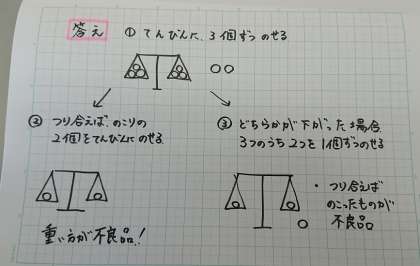 答え
① てんびんに、3個ずつのせる
② つり合えば、のこりの
2個をてんびんにのせる
重い方が不良品！
③ どちらかが下がった場合
3つのうち2つを1個ずつのせる
・つり合えば
のこったものが
不良品